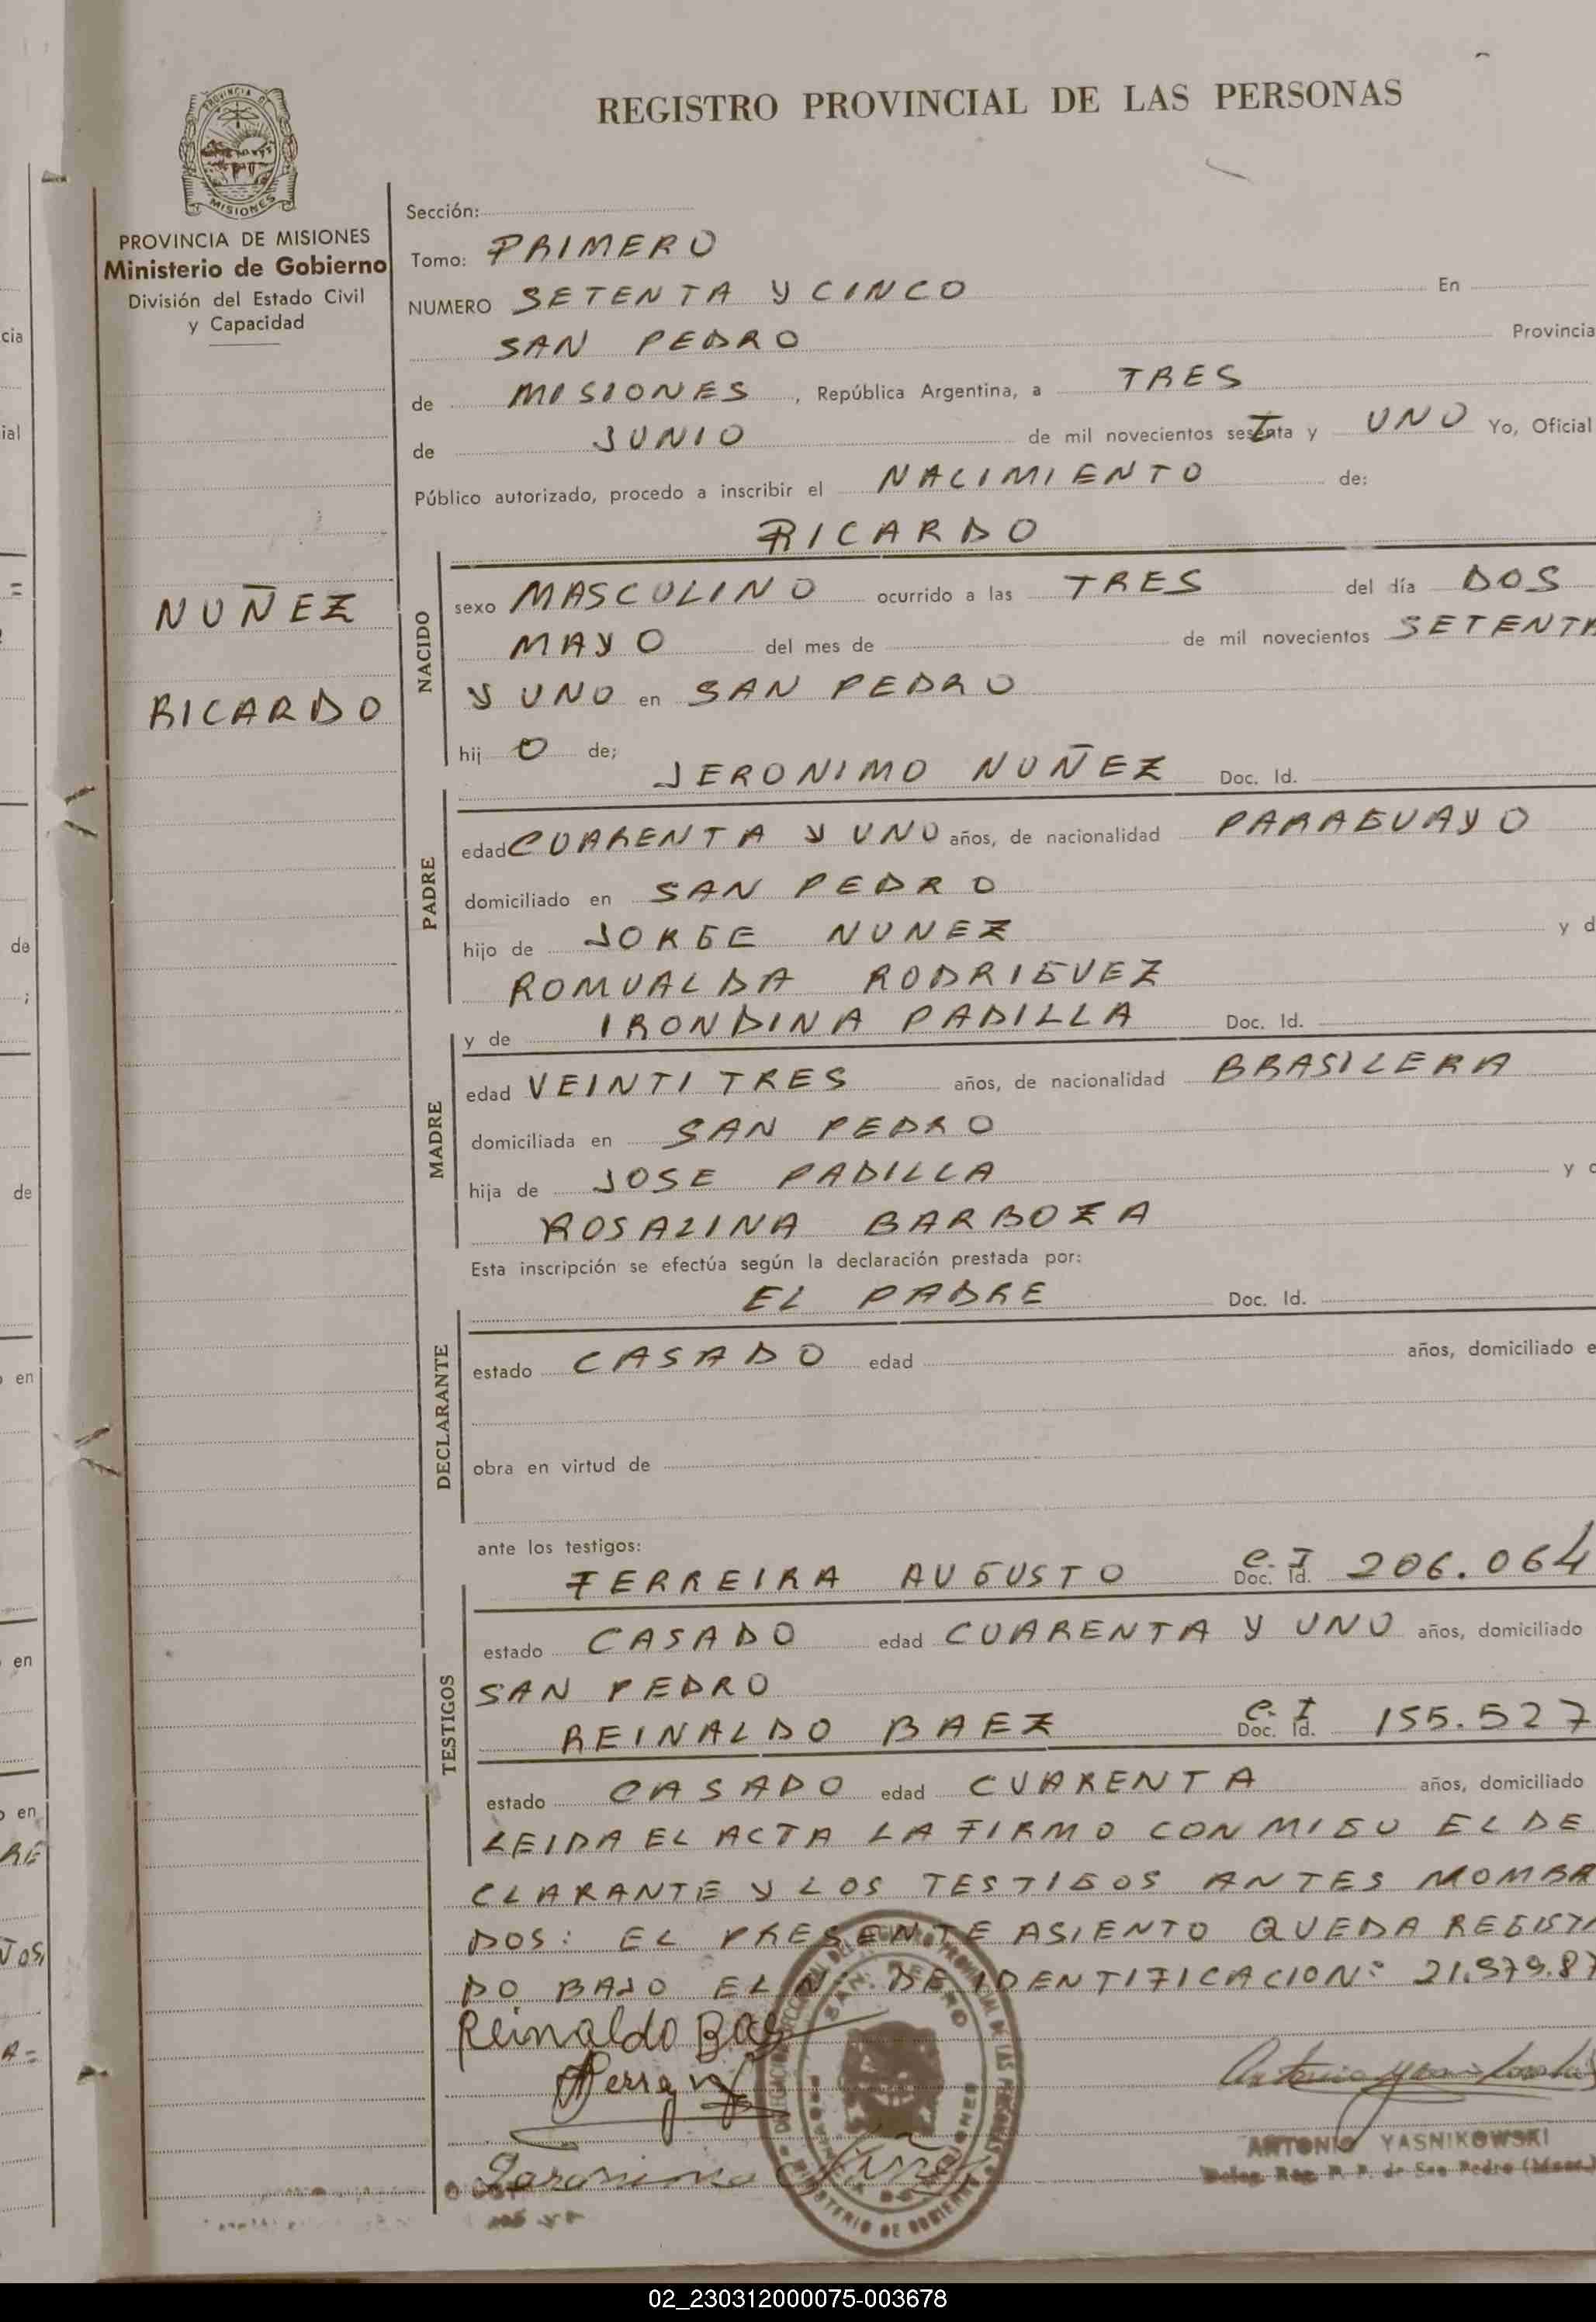 REGISTRO PROVINCIAL DE LAS PERSONAS
PROVINCIA DE MISIONES
Ministerio de Gobierno
División del Estado Civil
y Capacidad
NUÑEZ
RICARDO
Sección:
Tomo: PRIMERO
NUMERO SETENTA Y CINCO En
SAN PEDRO Provincia
de MISIONES, República Argentina, a TRES
de JUNIO de mil novecientos setenta y UNO Yo, Oficial
Público autorizado, procedo a inscribir el NACIMIENTO de:
RICARDO
NACIDO
sexo MASCULINO ocurrido a las TRES del día DOS
MAYO del mes de de mil novecientos SETENTA
Y UNO en SAN PEDRO
hij O de;
JERONIMO NUÑEZ Doc. Id.
PADRE
edad CUARENTA Y UNO años, de nacionalidad PARAGUAYO
domiciliado en SAN PEDRO
hijo de JORGE NUNEZ y d
ROMUALDA RODRIGUEZ
y de IRONDINA PADILLA Doc. Id.
MADRE
edad VEINTI TRES años, de nacionalidad BRASILERA
domiciliada en SAN PEDRO
hija de JOSE PADILLA y
ROSALINA BARBOZA
Esta inscripción se efectúa según la declaración prestada por:
EL PADRE Doc. Id.
DECLARANTE
estado CASADO edad años, domiciliado e
obra en virtud de
ante los testigos:
FERREIRA AUGUSTO C. I Doc. Id. 206.064
TESTIGOS
estado CASADO edad CUARENTA Y UNO años, domiciliado
SAN PEDRO
REINALDO BAEZ C. I Doc. Id. 155.527
estado CASADO edad CUARENTA años, domiciliado
LEIDA EL ACTA LA FIRMO CON MIGO EL DE
CLARANTE Y LOS TESTIGOS ANTES MOMBRA
DOS: EL PRESENTE ASIENTO QUEDA REGIST
DO BAJO EL Nº DE IDENTIFICACION: 21.979.87
Reinaldo Baez
Jeronimo Nuñez
SAN PEDRO
ANTONIO YASNIKOWSKI
Deleg. Reg. P. P. de San Pedro (Mnes.)
02_230312000075-003678